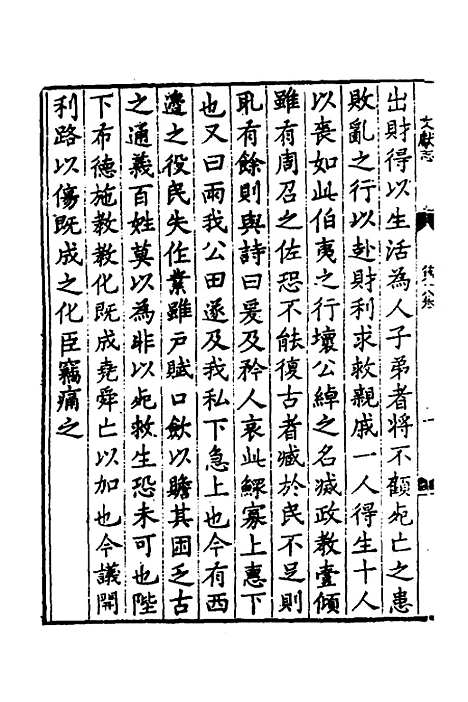 文獻志
後六卷
一
出財得以生活為人子弟者將不顧死亡之患
敗亂之行以赴財利求救親戚一人得生十人
以喪如此伯夷之行壞公綽之名滅政教壹傾
雖有周召之佐恐不能復古者臧於民不足則
取有餘則與詩曰爰及矜人哀此鰥寡上惠下
也又曰雨我公田遂及我私下急上也今有西
邊之役民失作業雖戶賦口斂以贍其困乏古
之通義百姓莫以為非以死救生恐未可也陛
下布德施教教化既成堯舜亡以加也今議開
利路以傷既成之化臣竊痛之